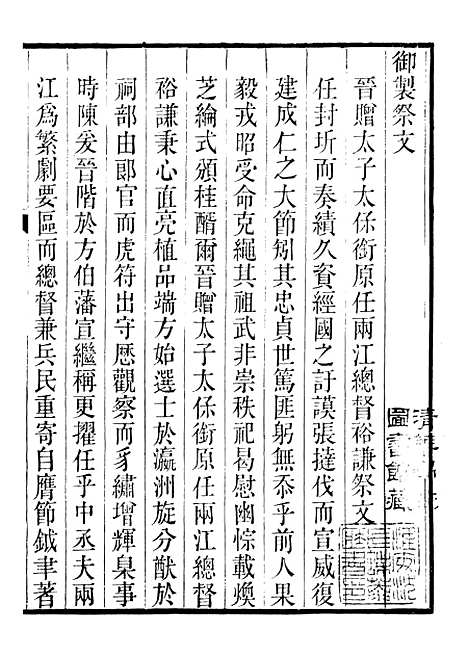 御製祭文
晉贈太子太保銜原任兩江總督裕謙祭文
任封圻而奏績久資經國之訏謨張撻伐而宣威復
建成仁之大節矧其忠貞世篤匪躬無忝乎前人果
毅戎昭受命克繩其祖武非崇秩祀曷慰幽悰載煥
芝綸式頒桂醑爾晉贈太子太保銜原任兩江總督
裕謙秉心直亮植品端方始選士於瀛洲旋分猷於
祠部由郎官而虎符出守歷觀察而豸繡增輝臬事
時陳爰晉階於方伯藩宣繼稱更擢任乎中丞夫兩
江爲繁劇要區而總督兼兵民重寄自膺節鉞聿著
圖書館藏